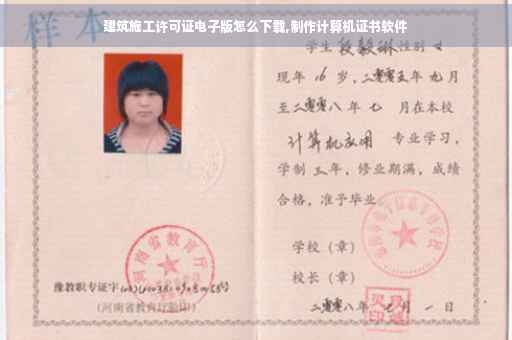 样本
建筑施工许可证电子版怎么下载,制作计算机证书软件
学生 段毅琳 性别 女
现年 16 岁，二零零五年 九月
至二零零八年 七 月在本校
计算机应用 专业学习，
学制 三 年，修业期满，成绩
合格，准予毕业
学校（章）
校长（章）
二零零八年 七 月 一 日
河南省教育厅
豫教职专证字
(河南省教育厅验印)